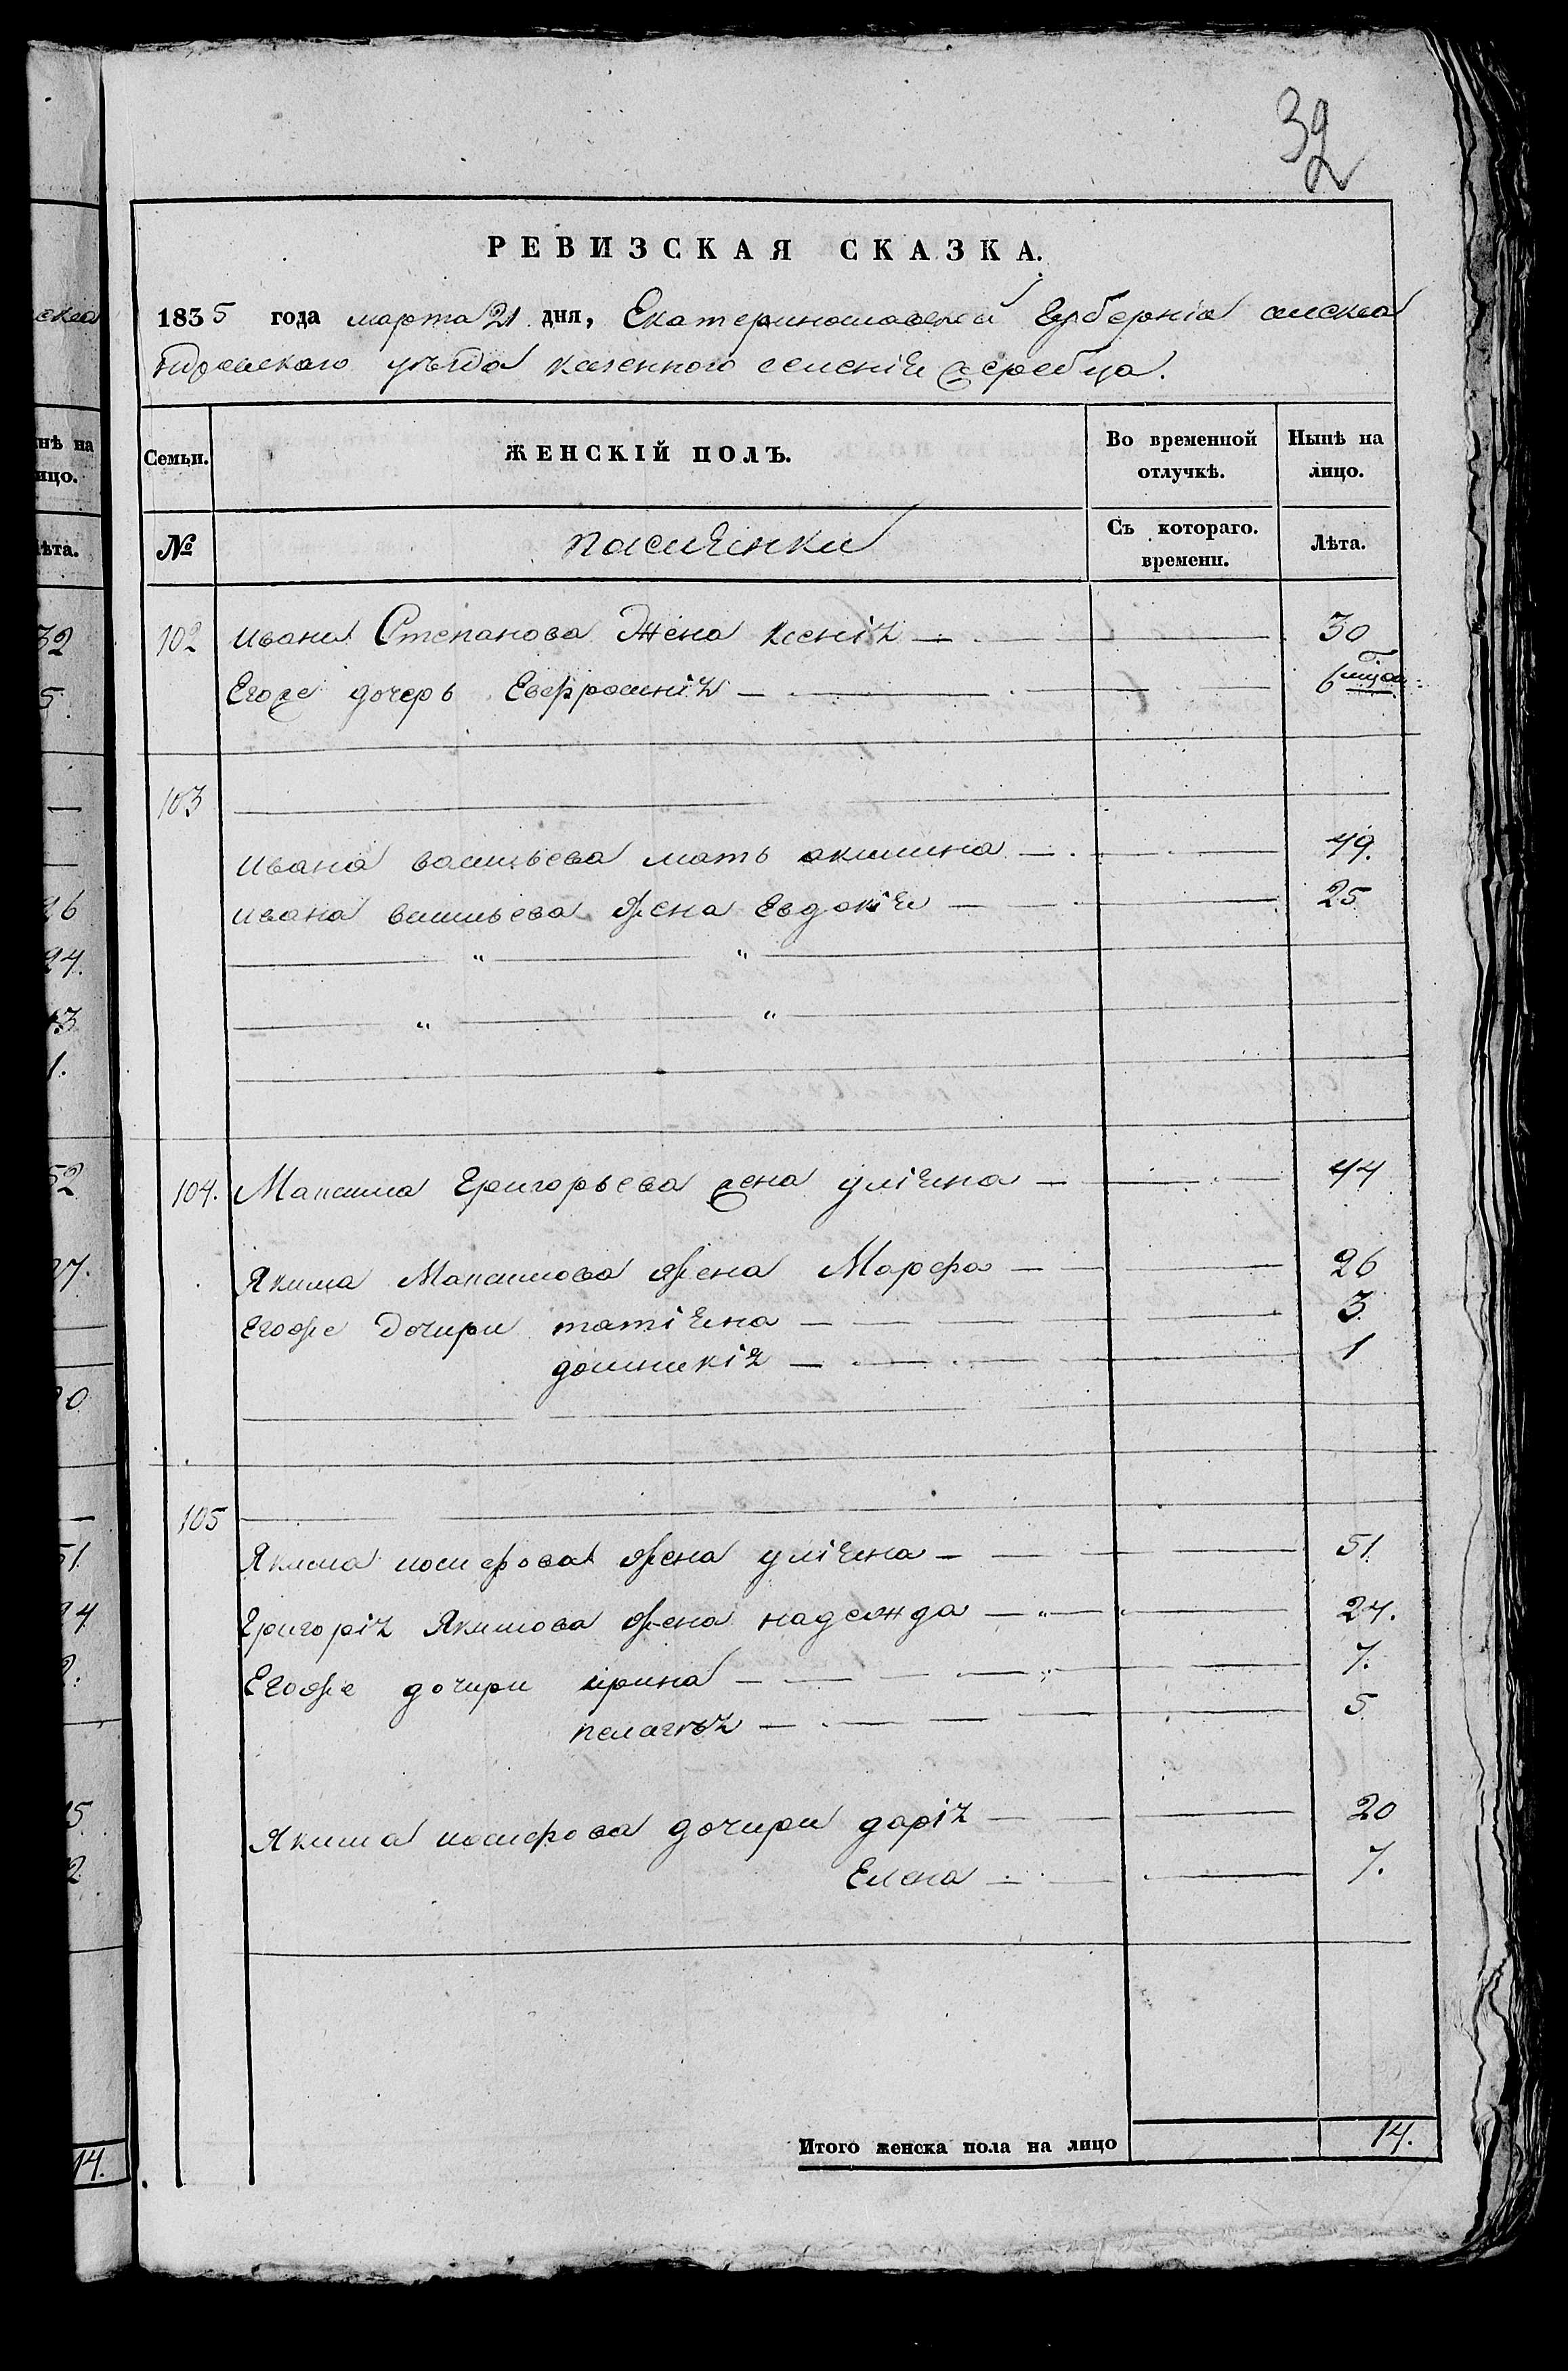 32
РЕВИЗСКАЯ СКАЗКА.
1835 года марта 21 дня, Екатеринославской Губерніи алекса
ндровскаго уѣзда казенного селенія жеребца.
Семьи. ЖЕНСКІЙ ПОЛЪ. Во временной отлучкѣ. Нынѣ на лицо.
№ Съ котораго. времени. Лѣта.
102 ивана Степанова Жена ксенія 30
Егоже дочерь Евфросинія 6
103
ивана васильева мать акилина 49.
ивана васильева жена Евдокія 25
" "
" "
104. Максима Григорьева жена уліяна 44
Якима Максимова жена Марфа 26
Егоже дочири татіяна 3
домникія 1
105
Якима иосифова жена уліяна 51
Григорія Якимова жена надежда 27.
Егоже дочири ирина 7.
пелагѣя 5
Якима иосифова дочири дарія 20
Елена 7.
Итого женска пола на лицо 14.
нѣ на
ицо.
ѣта.
32
5.
26
24.
43
1.
52
27.
20
51
24
2.
15
2
14.